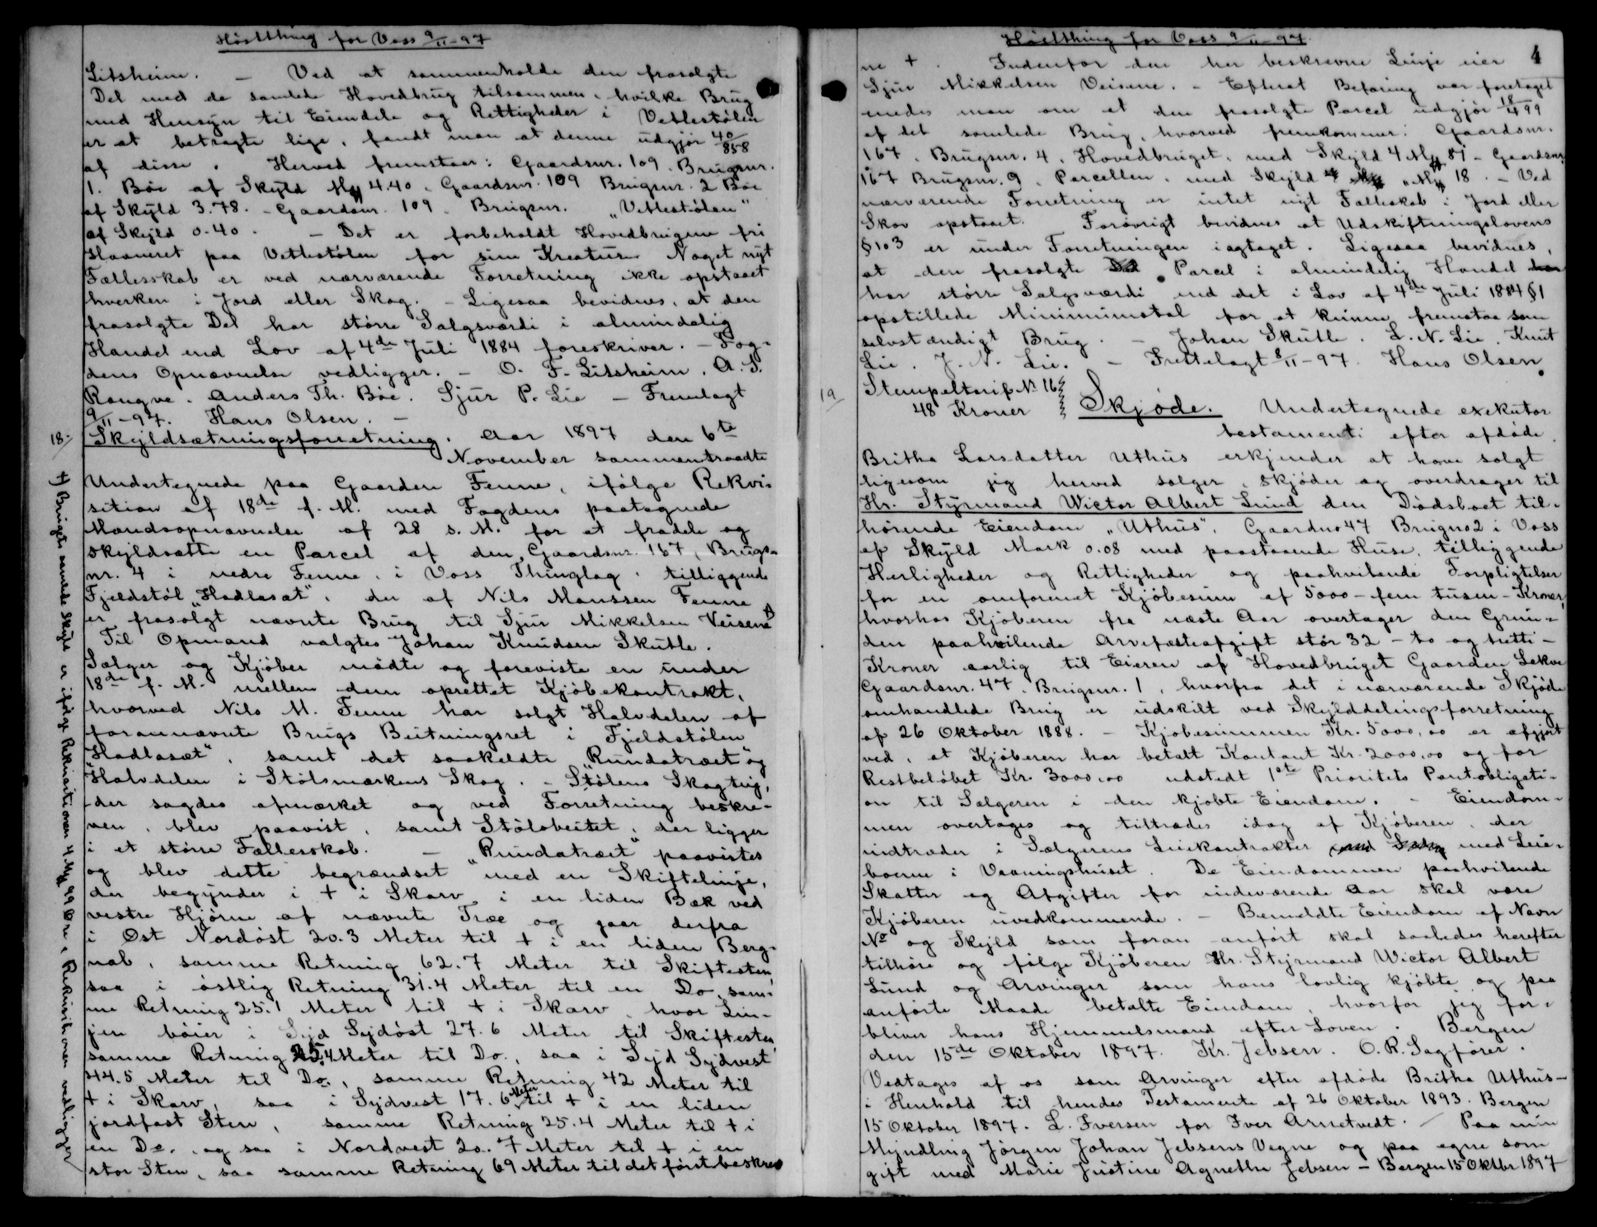 Høstthing for Voss 9/11-97
Litsheim. – Ved at sammenholde den frasolgte
Del med de samlede Hovedbrug tilsammen, hvilke Brug
med Hensyn til Eiendele og Rettigheder i Vetlestølen
er at betragte lige, fandt man at denne udgjør 40/858
af disse. Herved fremstaar: Gaardsnr. 109. Brugsnr.
1. Bøe af Skyld Mk 4.40. Gaardsnr. 109 Brugsnr. 2 Bøe
af Skyld 3.78. – Gaardsnr. 109. Brugsnr. "Vetlestølen"
af Skyld 0.40. – Det er forbeholdt Hovedbrugene fri
Havneret paa Vetlestølen for sine Kreature. Noget nyt
Fællesskab er ved nærværende Forretning ikke opstaaet
hverken i Jord eller Skog. – Ligesaa bevidnes, at den
frasolgte Del har større Salgsværdi i almindelig
Handel end Lov af 4de Juli 1884 foreskriver. – Fog-
dens Opnævnelse vedligger. – O. F. Litsheim. A. S.
Rongve. Anders Th. Bøe. Sjur P. Lie – Fremlagt
9/11-97. Hans Olsen. –
18. Skyldsætningsforretning. Aar 1897 den 6te
November sammentraadte
Undertegnede paa Gaarden Fenne, ifølge Rekvi-
sition af 18de f. M. med Fogdens paategnede
Mandsopnævnelse af 28 s. M. for at fradele og
skyldsætte en Parcel af den Gaardsnr. 167, Brugs-
nr. 4 i nedre Fenne, i Voss Thinglag tilliggende
Fjeldstøl "Hadlasæt", der af Nils Monssen Fenne
er frasolgt nævnte Brug til Sjur Mikkelsen Veisene
Til Opmand valgtes Johan Knudsen Skutle.
Sælger og Kjøber mødte og foreviste en under
18de f. M. mellem dem oprettet Kjøbekontrakt,
hvorved Nils M. Fenne har solgt Halvdelen af
forannævnte Brugs Beitningsret i Fjeldstølen
"Hadlasæt", samt det saakaldte "Rundatræet" og
Halvdelen i Stølsmarkens Skog. – Stølens Skogteig,
der sagdes afmærket og ved Forretning beskre-
ven, blev paavist, samt Stølsbeitet, der ligger
i et større Fællesskab. – "Rundatræet" paavistes
og blev dette begrændset med en Skiftelinje,
der begynder i + i Skarv i en liden Bæk ved
vestre Hjørne af nævnte Træe og gaar derfra
i Øst Nordøst 20.3 Meter til + i en liden Berg-
nab, samme Retning 62.7 Meter til Skiftesten
saa i østlig Retning 31.4 Meter til en Do. sam-
me Retning 25.1 Meter til + i Skarv, hvor Lin-
jen bøier i Syd Sydøst 27.6 Meter til Skiftesten
samme Retning 25.4 Meter til Do., saa i Syd Sydvest
44.5 Meter til Do., samme Retning 42 Meter til
+ i Skarv, saa i Sydvest 17.6 Meter til + i en liden
jordfast Sten, samme Retning 25.4 Meter til + i
en Do. og saa i Nordvest 20.7 Meter til + i en
stor Sten, saa samme Retning 69 Meter til det først beskrev
+) Brugets samlede Skyld er ifølge Rekvisitionen 4 Mk 99 Øre, Rekvisitionen vedligger
Høstthing for Voss 9/11-97.
4
ne +. Indenfor den her beskrevne Linje eier
Sjur Mikkelsen Veisene. – Efterat Befaring var foretaget
enedes man om at den frasolgte Parcel udgjør 18/499
af det samlede Brug, hvorved fremkommer: Gaardsnr.
167. Brugsnr. 4. Hovedbruget, med Skyld 4 Mk 81 – Gaardsnr.
167 Brugsnr. 9. Parcellen, med Skyld " Mk 18. – Ved
nærværende Forretning er intet nyt Fælleskab i Jord eller
Skov opstaaet. Forøvrigt bevidnes at Udskiftningslovens
§103 er under Forretningen iagtaget. Ligesaa bevidnes,
at den frasolgte Parcel i almindelig Handel
har større Salgsværdi end det i Lov af 4de Juli 1884 §1
opstillede Minimumstal for at kunne fremstaa som
selvstændigt Brug. – Johan Skutle. L. N. Lie. Knut
Lie. J. N. Lie. – Fremlagt 9/11-97. Hans Olsen.
19 Stempeltarif No 16
48 Kroner
Skjøde. Undertegnede exekutor
testamenti efter afdøde
Britha Larsdatter Uthus erkjender at have solgt
ligesom jeg herved sælger, skjøder og overdrager til
Hr. Styrmand Wictor Albert Lund den Dødsboet til-
hørende Eiendom "Uthus" Gaardno 47 Brugno 2 i Voss
af Skyld Mark 0.08 med paastaaende Huse, tilliggende
Herligheder og Rettigheder og paahvilende Forpligtelser
for en omforenet Kjøbesum af 5000 – fem tusen – Kroner,
hvorhos Kjøberen fra næste Aar overtager den Grun-
den paahvilende Arvefæsteafgift stor 32 – to og tretti –
Kroner aarlig til Eieren af Hovedbruget Gaarden Lekve
Gaardsnr. 47. Brugsnr. 1, hvorfra det i nærværende Skjøde
omhandlede Brug er udskilt ved Skylddelingsforretning
af 26 Oktober 1888. – Kjøbesummen Kr. 5000,00 er afgjort
ved, at Kjøberen har betalt Kontant Kr. 2000,00 og for
Restbeløbet Kr. 3000,00 udstedt 1ste Prioritets Pantobligati-
on til Sælgeren i den kjøbte Eiendom. – Eiendom-
men overtages og tiltrædes idag af Kjøberen, der
indtræder i Sælgerens Leiekontrakter med Leie-
boerne i Vaaningshuset. De Eiendommen paahvilende
Skatter og Afgifter for indeværende Aar skal være
Kjøberen uvedkommende. – Bemeldte Eiendom af Navn
No og Skyld som foran anført skal saaledes herefter
tilhøre og følge Kjøberen Hr. Styrmand Wictor Albert
Lund og Arvinger som hans lovlig kjøbte og paa
anførte Maade betalte Eiendom, hvorfor jeg for-
bliver hans Hjemmelsmand efter Loven. Bergen
den 15de Oktober 1897. Kr. Jebsen. O. R. Sagfører.
Vedtages af os som Arvinger efter afdøde Britha Uthus –
i Henhold til hendes Testamente af 26 Oktober 1893. Bergen
15 Oktober 1897. L. Iversen for Iver Arnetvedt. / Paa min
Myndling Jørgen Johan Jebsens Vegne og paa egne som
gift med Marie Justine Agnethe Jebsen – Bergen 15 Oktbr 1897